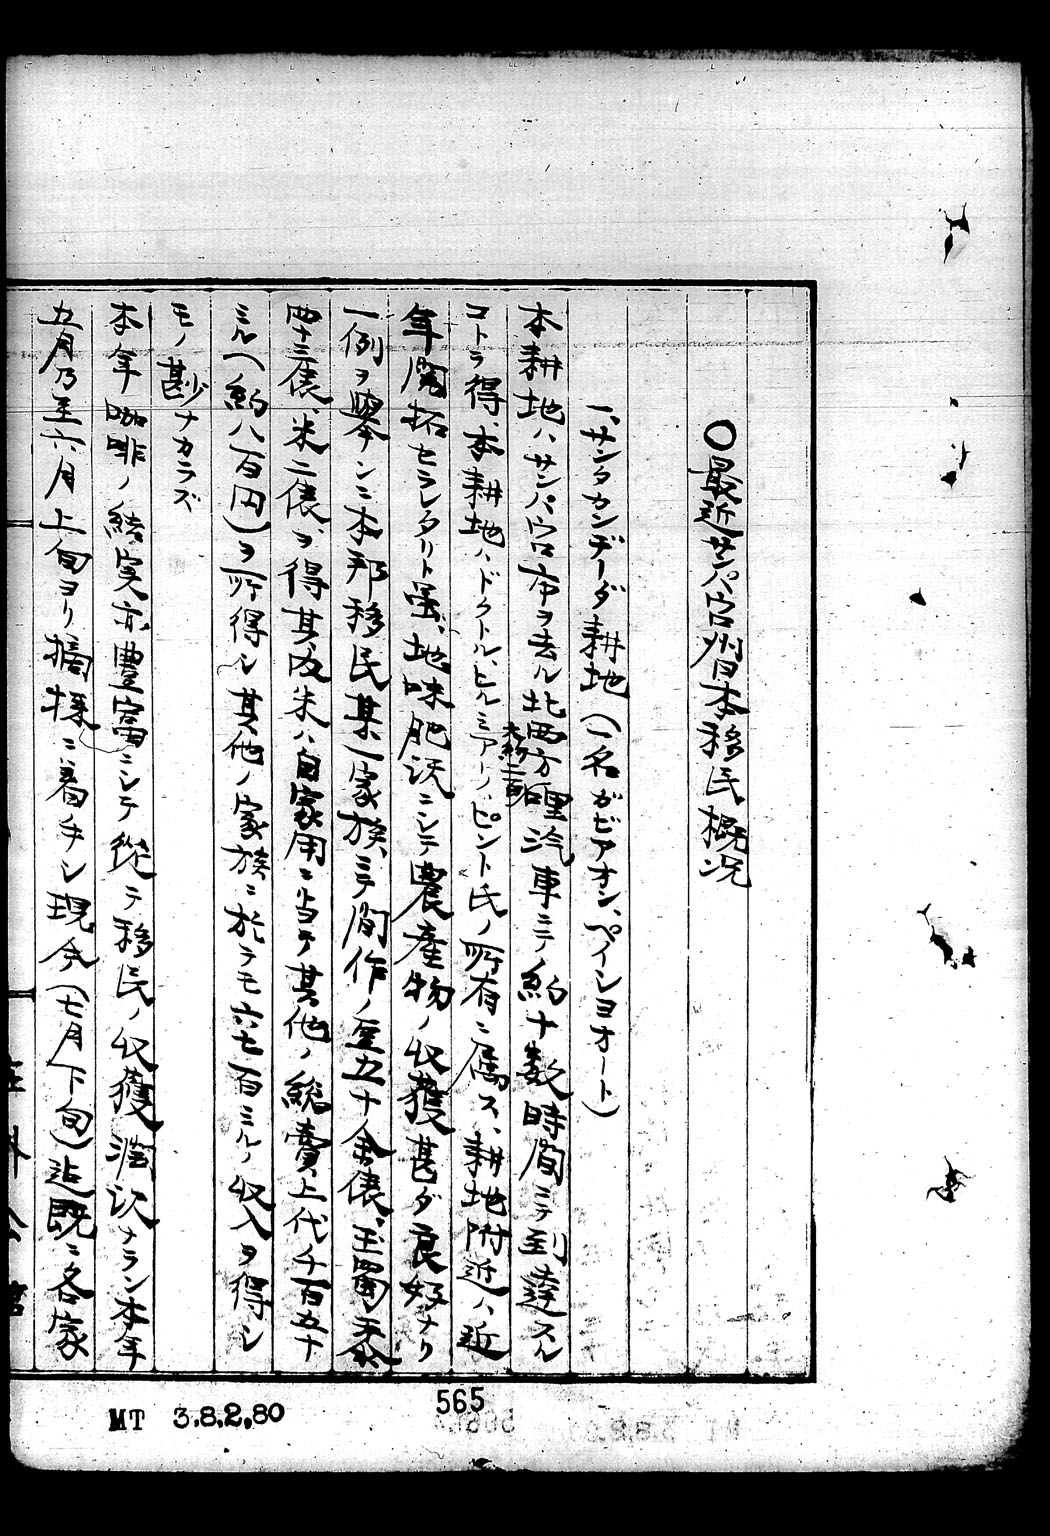 〇最近サンパウロ州日本移民概况
一、サンタカンヂーダ耕地(一名ガビアオン、ペイショオート)
本耕地ハサンパウロ市ヲ去ル北西方哩汽車ニテ約十数時間ニテ到達スル
大約二百
コトヲ得、本耕地ハドクトル、ヒルミアーノ、ピント氏ノ所有ニ属ス、耕地附近ハ近
年開拓セラレタリト虽、地味肥沃ニシテ農産物ノ収獲甚ダ良好ナリ
一例ヲ擧ケンニ本邦移民某一家族ニテ間作ノ豆五十余俵、玉蜀黍
四十三俵、米二俵ヲ得其内米ハ自家用ニ当テ其他ノ総賣上代千百五十
ミル(約八百円)ヲ所得シ其他ノ家族ニ於テモ六七百ミルノ収入ヲ得シ
モノ尠ナカラズ
本年咖啡ノ結実亦豊富ニシテ従テ移民ノ収獲潤沢ナラン本年
五月乃至六月上旬ヨリ摘採ニ着手シ現今(七月下旬)迠既ニ各家
在外公館
MT 3.8.2.80
565